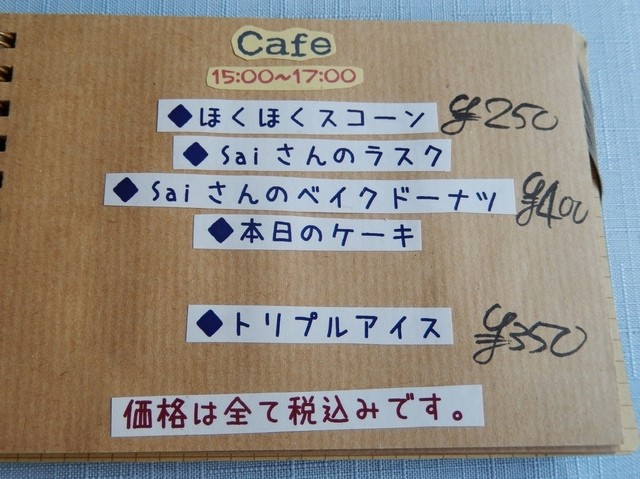 Cafe
15:00~17:00
◆ほくほくスコーン ¥250
◆Saiさんのラスク
◆Saiさんのベイクドーナツ ¥400
◆本日のケーキ
◆トリプルアイス ¥350
価格は全て税込みです。